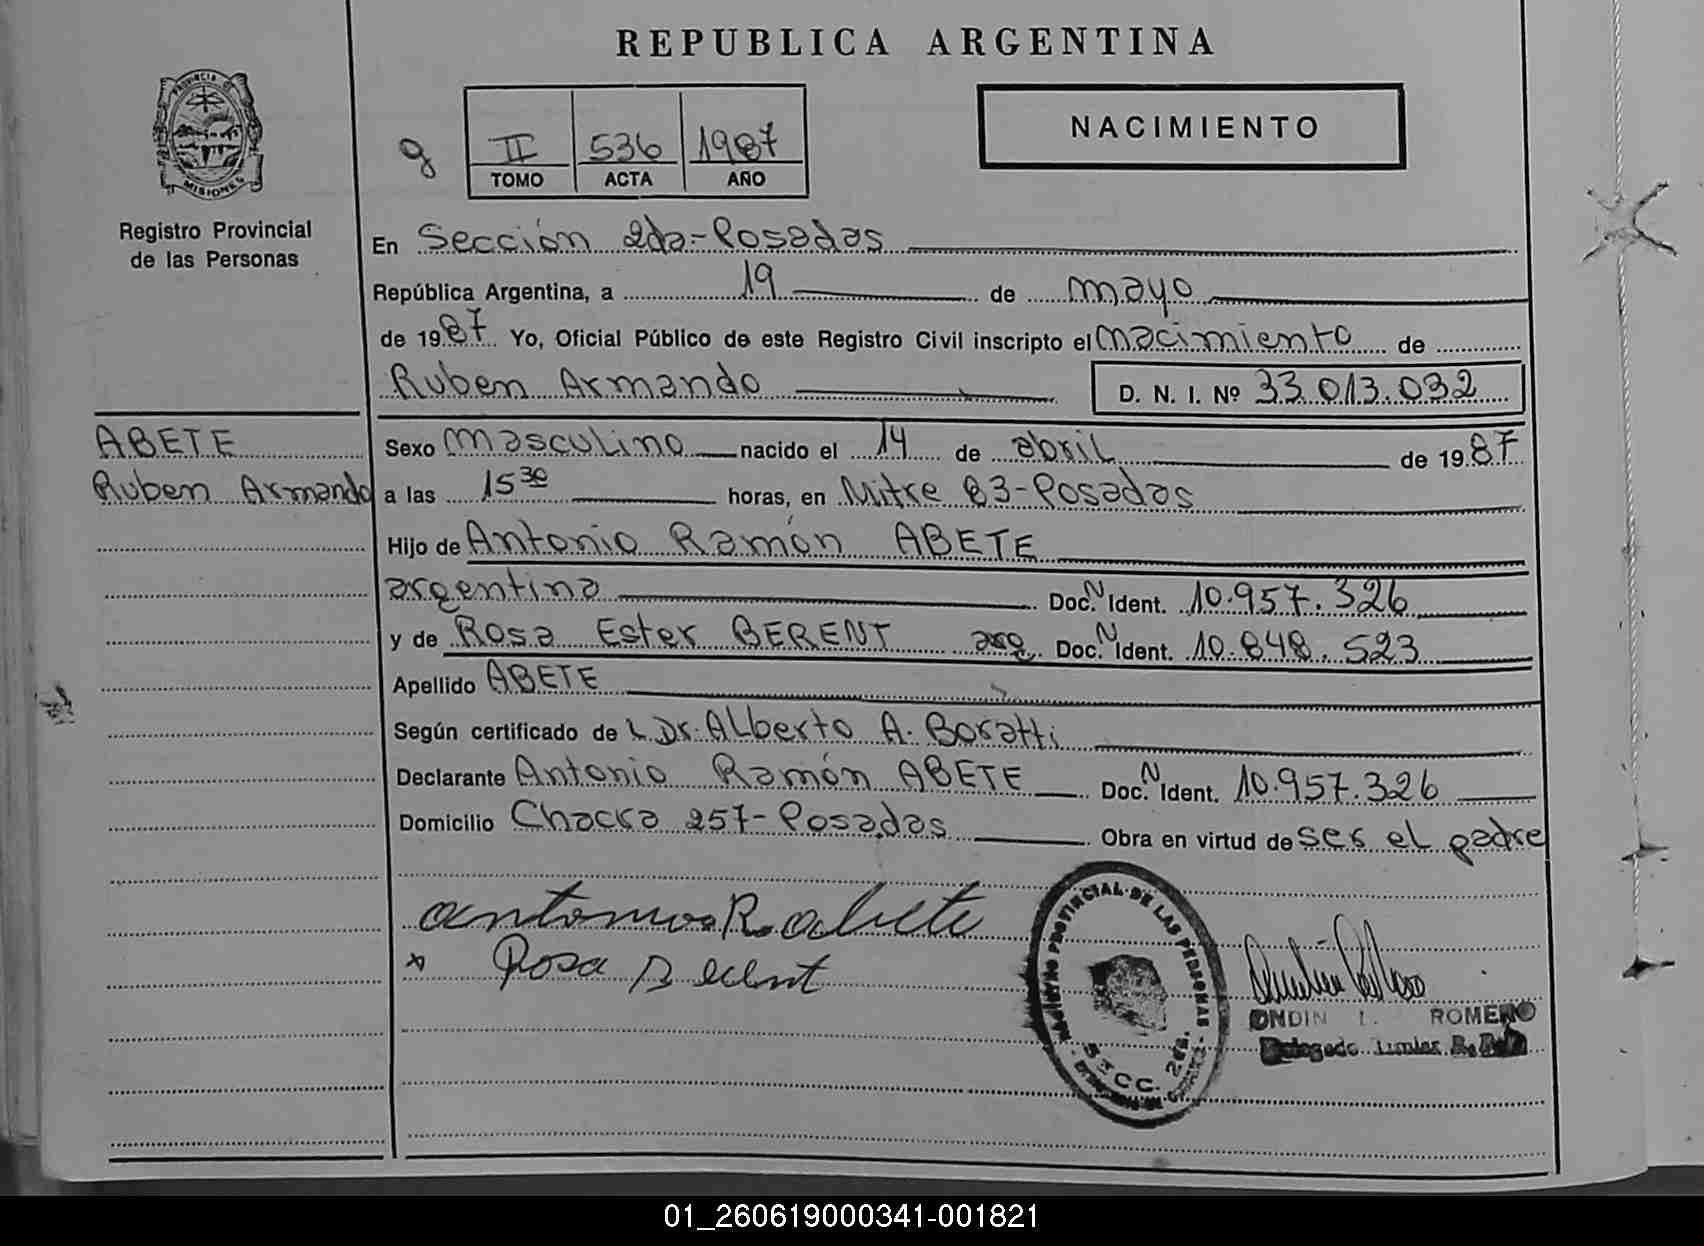 REPUBLICA ARGENTINA
PROVINCIA DE
MISIONES
Registro Provincial
de las Personas
g
II 536 1987
TOMO ACTA AÑO
NACIMIENTO
En Sección 2da-Posadas
República Argentina, a 19 de mayo
de 1987 Yo, Oficial Público de este Registro Civil inscripto el nacimiento de
Ruben Armando D. N. I. Nº 33.013.032
ABETE
Ruben Armando
Sexo masculino nacido el 14 de abril de 1987
a las 15 30 horas, en Mitre 83-Posadas
Hijo de Antonio Ramón ABETE
argentina Doc. N Ident. 10.957.326
y de Rosa Ester BERENT arg Doc. N Ident. 10.848.523
Apellido ABETE
Según certificado de L Dr. ALberto A. Boratti
Declarante Antonio Ramón ABETE Doc. N Ident. 10.957.326
Domicilio Chacra 257-Posadas Obra en virtud de ser el padre
antonio R. abete
x Rosa Berent
REGISTRO PROVINCIAL DE LAS PERSONAS
SECC. 2da.
ONDIN I. ROMERO
Delegado
01_260619000341-001821